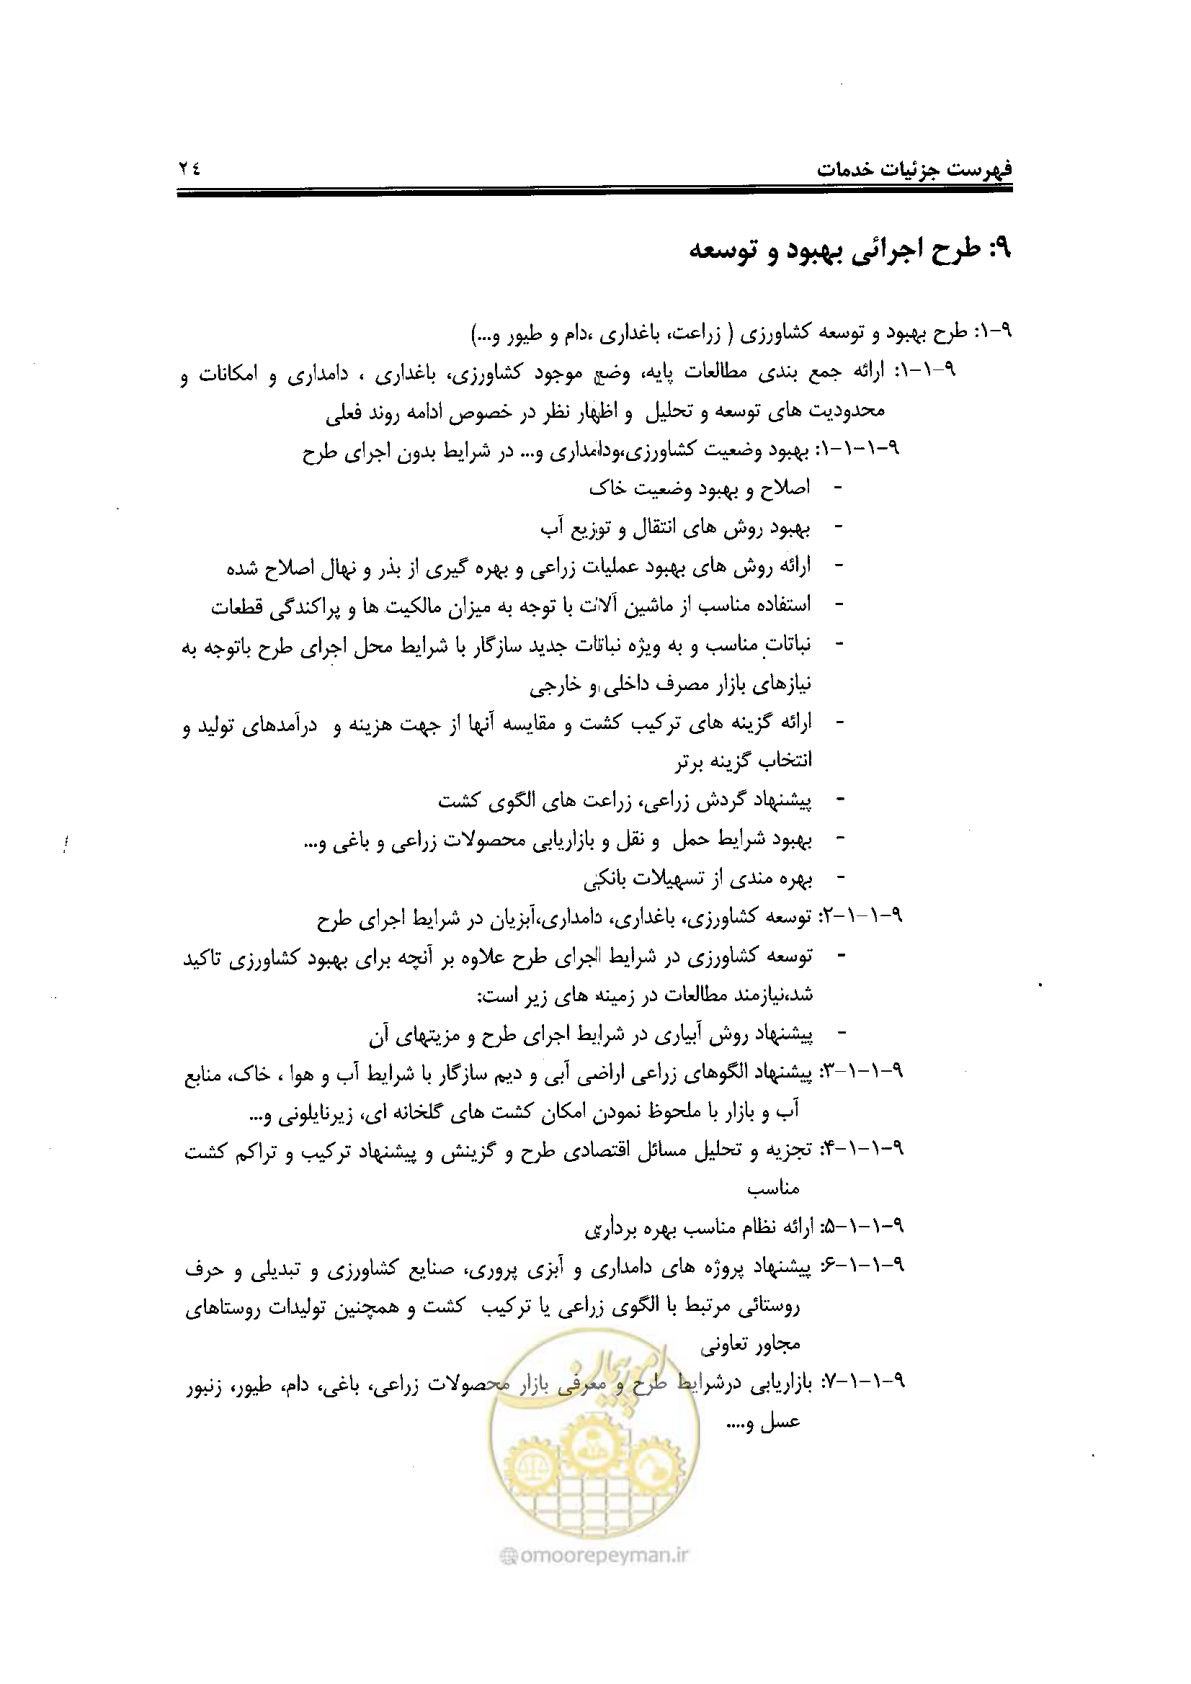 فهرست جزئیات خدمات ۲٤
۹: طرح اجرائی بهبود و توسعه
۹-۱: طرح بهبود و توسعه کشاورزی ( زراعت، باغداری ،دام و طیور و...)
۹-۱-۱: ارائه جمع بندی مطالعات پایه، وضع موجود کشاورزی، باغداری ، دامداری و امکانات و
محدودیت های توسعه و تحلیل و اظهار نظر در خصوص ادامه روند فعلی
۹-۱-۱-۱: بهبود وضعیت کشاورزی،ودامداری و... در شرایط بدون اجرای طرح
- اصلاح و بهبود وضعیت خاک
- بهبود روش های انتقال و توزیع آب
- ارائه روش های بهبود عملیات زراعی و بهره گیری از بذر و نهال اصلاح شده
- استفاده مناسب از ماشین آلات با توجه به میزان مالکیت ها و پراکندگی قطعات
- نباتات مناسب و به ویژه نباتات جدید سازگار با شرایط محل اجرای طرح باتوجه به
نیازهای بازار مصرف داخلی و خارجی
- ارائه گزینه های ترکیب کشت و مقایسه آنها از جهت هزینه و درآمدهای تولید و
انتخاب گزینه برتر
- پیشنهاد گردش زراعی، زراعت های الگوی کشت
- بهبود شرایط حمل و نقل و بازاریابی محصولات زراعی و باغی و...
- بهره مندی از تسهیلات بانکی
۹-۱-۱-۲: توسعه کشاورزی، باغداری، دامداری،آبزیان در شرایط اجرای طرح
- توسعه کشاورزی در شرایط اجرای طرح علاوه بر آنچه برای بهبود کشاورزی تاکید
شد،نیازمند مطالعات در زمینه های زیر است:
- پیشنهاد روش آبیاری در شرایط اجرای طرح و مزیتهای آن
۹-۱-۱-۳: پیشنهاد الگوهای زراعی اراضی آبی و دیم سازگار با شرایط آب و هوا ، خاک، منابع
آب و بازار با ملحوظ نمودن امکان کشت های گلخانه ای، زیرنایلونی و...
۹-۱-۱-۴: تجزیه و تحلیل مسائل اقتصادی طرح و گزینش و پیشنهاد ترکیب و تراکم کشت
مناسب
۹-۱-۱-۵: ارائه نظام مناسب بهره برداری
۹-۱-۱-۶: پیشنهاد پروژه های دامداری و آبزی پروری، صنایع کشاورزی و تبدیلی و حرف
روستائی مرتبط با الگوی زراعی یا ترکیب کشت و همچنین تولیدات روستاهای
مجاور تعاونی
۹-۱-۱-۷: بازاریابی درشرایط طرح و معرفی بازار محصولات زراعی، باغی، دام، طیور، زنبور
عسل و....
امور پیمان
omoorepeyman.ir